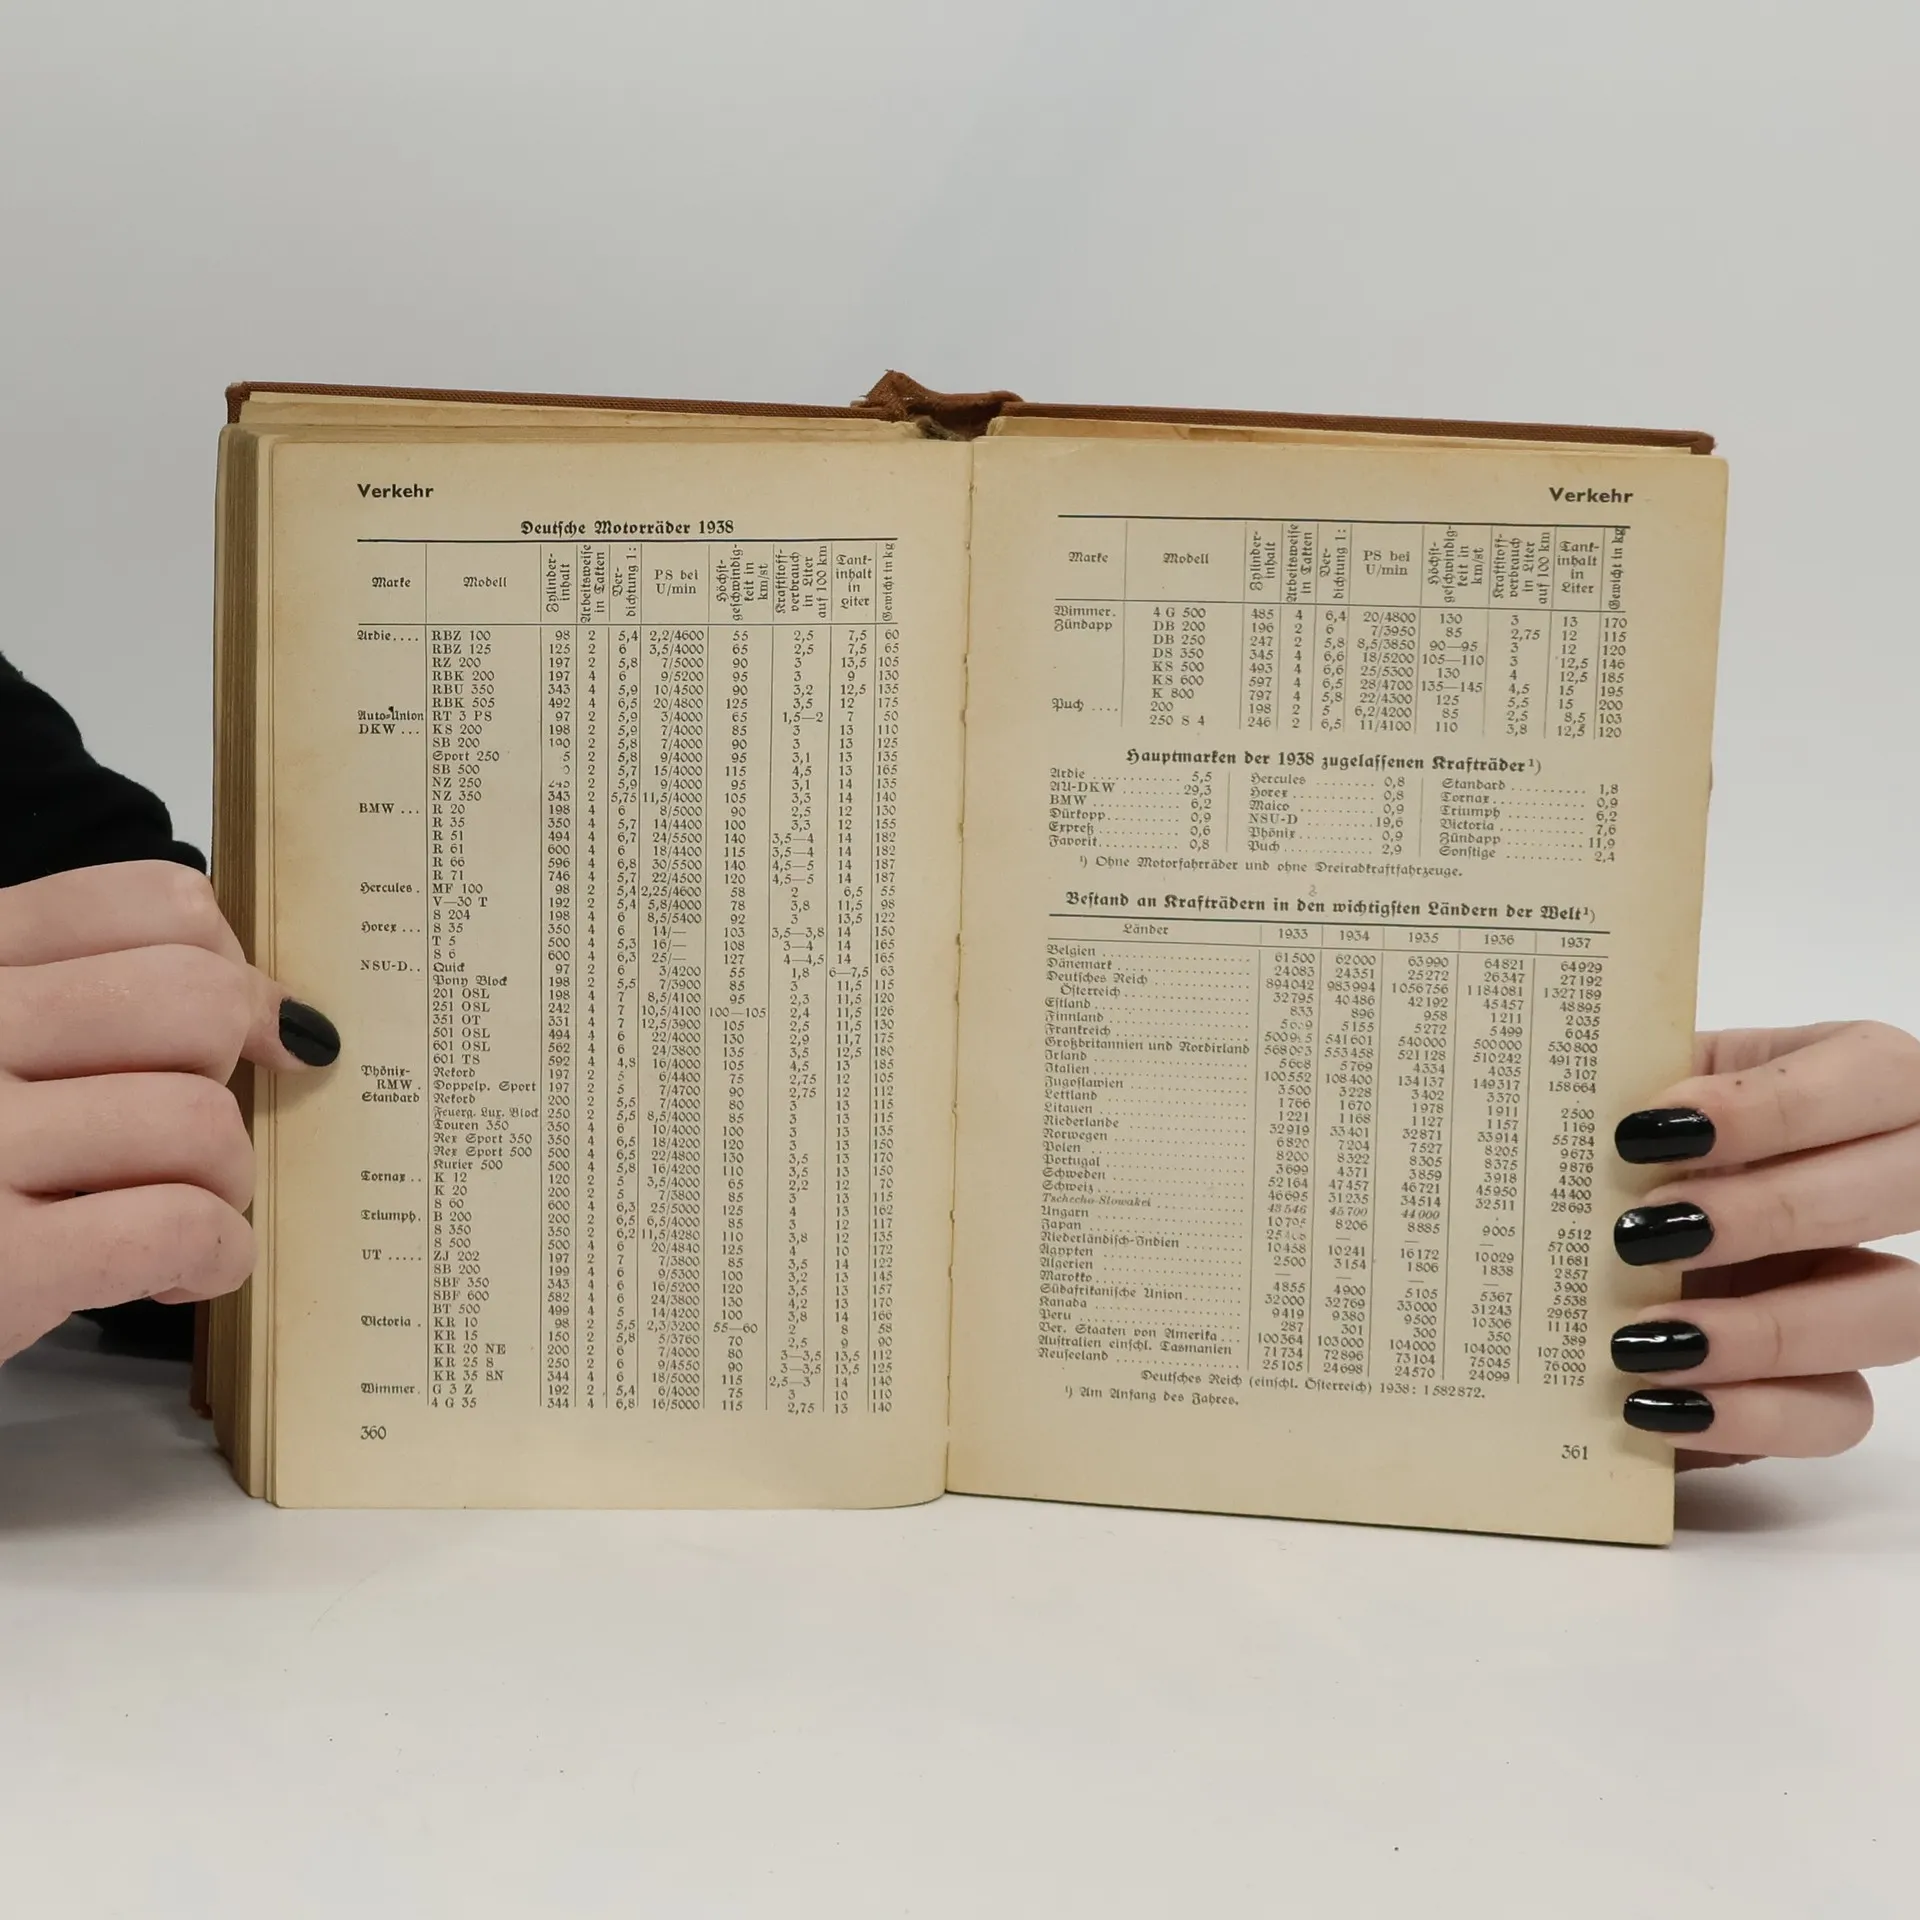 Verkehr
Deutsche Motorräder 1938
Marke Modell Zylinder-inhalt Arbeitsweise in Takten Ver-dichtung 1: PS bei U/min Höchst-geschwindig-keit in km/st Kraftstoff-verbrauch in Liter auf 100 km Tank-inhalt in Liter Gewicht in kg
Ardie.... RBZ 100 98 2 5,4 2,2/4600 55 2,5 7,5 60
RBZ 125 125 2 6 3,5/4000 65 2,5 7,5 65
RZ 200 197 2 5,8 7/5000 90 3 13,5 105
RBK 200 197 4 6 9/5200 95 3 9 130
RBU 350 343 4 5,9 10/4500 90 3,2 12,5 135
RBK 505 492 4 6,5 20/4800 125 3,5 12 175
Auto-Union RT 3 PS 97 2 5,9 3/4000 65 1,5—2 7 50
DKW ... KS 200 198 2 5,9 7/4000 85 3 13 110
SB 200 2 5,8 7/4000 90 3 13 125
Sport 250 2 5,8 9/4000 95 3,1 13 135
SB 500 2 5,7 15/4000 115 4,5 13 165
NZ 250 2 5,9 9/4000 95 3,1 14 135
NZ 350 343 2 5,75 11,5/4000 105 3,3 14 140
BMW ... R 20 198 4 6 8/5000 90 2,5 12 130
R 35 350 4 5,7 14/4400 100 3,3 12 155
R 51 494 4 6,7 24/5500 140 3,5—4 14 182
R 61 600 4 6 18/4400 115 3,5—4 14 182
R 66 596 4 6,8 30/5500 140 4,5—5 14 187
R 71 746 4 5,7 22/4500 120 4,5—5 14 187
Hercules. MF 100 98 2 5,4 2,25/4600 58 2 6,5 55
V—30 T 192 2 5,4 5,8/4000 78 3,8 11,5 98
S 204 198 4 6 8,5/5400 92 3 13,5 122
Horex ... S 35 350 4 6 14/— 103 3,5—3,8 14 150
T 5 500 4 5,3 16/— 108 3—4 14 165
S 6 600 4 6,3 25/— 127 4—4,5 14 165
NSU-D.. Quick 97 2 6 3/4200 55 1,8 6—7,5 63
Pony Block 198 2 5,5 7/3900 85 3 11,5 115
201 OSL 198 4 7 8,5/4100 95 2,3 11,5 120
251 OSL 242 4 7 10,5/4100 100—105 2,4 11,5 126
351 OT 331 4 7 12,5/3900 105 2,5 11,5 130
501 OSL 494 4 6 22/4000 130 2,9 11,7 175
601 OSL 562 4 6 24/3800 135 3,5 12,5 180
601 TS 592 4 4,8 16/4000 105 4,5 13 185
Phönix- Rekord 197 2 5 6/4400 75 2,75 12 105
RMW . Doppelp. Sport 197 2 5 7/4700 90 2,75 12 112
Standard Rekord 200 2 5,5 7/4000 80 3 13 115
Feuerg. Lux. Block 250 2 5,5 8,5/4000 85 3 13 115
Touren 350 350 4 6 10/4000 100 3 13 135
Rex Sport 350 350 4 6,5 18/4200 120 3 13 150
Rex Sport 500 500 4 6,5 22/4800 130 3,5 13 170
Kurier 500 500 4 5,8 16/4200 110 3,5 13 150
Tornax .. K 12 120 2 5 3,5/4000 65 2,2 12 70
K 20 200 2 5 7/3800 85 3 13 115
S 60 600 4 6,3 25/5000 125 4 13 162
Triumph. B 200 200 2 6,5 6,5/4000 85 3 12 117
S 350 350 2 6,2 11,5/4280 110 3,8 12 135
S 500 500 4 6 20/4840 125 4 10 172
UT ..... ZJ 202 197 2 7 7/3800 85 3,5 14 122
SB 200 199 4 6 9/5300 100 3,2 13 145
SBF 350 343 4 6 16/5200 120 3,5 13 157
SBF 600 582 4 6 24/3800 130 4,2 13 170
BT 500 499 4 5 14/4200 100 3,8 14 166
Victoria . KR 10 98 2 5,5 2,3/3200 55—60 2 8 58
KR 15 150 2 5,8 5/3760 70 2,5 9 90
KR 20 NE 200 2 6 7/4000 80 3—3,5 13,5 112
KR 25 S 250 2 6 9/4550 90 3—3,5 13,5 125
KR 35 SN 344 4 6 18/5000 115 2,5—3 14 140
Wimmer. G 3 Z 192 2 5,4 6/4000 75 3 10 110
4 G 35 344 4 6,8 16/5000 115 2,75 13 140
360
Verkehr
Marke Modell Zylinder-inhalt Arbeitsweise in Takten Ver-dichtung 1: PS bei U/min Höchst-geschwindig-keit in km/st Kraftstoff-verbrauch in Liter auf 100 km Tank-inhalt in Liter Gewicht in kg
Wimmer. 4 G 500 485 4 6,4 20/4800 130 3 13 170
Zündapp DB 200 196 2 6 7/3950 85 2,75 12 115
DB 250 247 2 5,8 8,5/3850 90—95 3 12 120
DS 350 345 4 6,6 18/5200 105—110 3 12,5 146
KS 500 493 4 6,6 25/5300 130 4 12,5 185
KS 600 597 4 6,5 28/4700 135—145 4,5 15 195
K 800 797 4 5,8 22/4300 125 5,5 15 200
Puch .... 200 198 2 5 6,2/4200 85 2,5 8,5 103
250 S 4 246 2 6,5 11/4100 110 3,8 12,5 120
Hauptmarken der 1938 zugelassenen Krafträder¹)
Ardie ........... 5,5 Hercules ........ 0,8 Standard ......... 1,8
AU-DKW ....... 29,3 Horex .......... 0,8 Tornax ........... 0,9
BMW ........... 6,2 Maico .......... 0,9 Triumph .......... 6,2
Dürkopp ........ 0,9 NSU-D ......... 19,6 Victoria .......... 7,6
Expreß .......... 0,6 Phönix .......... 0,9 Zündapp ......... 11,9
Favorit .......... 0,8 Puch ............ 2,9 Sonstige .......... 2,4
¹) Ohne Motorfahrräder und ohne Dreiradkraftfahrzeuge.
Bestand an Krafträdern in den wichtigsten Ländern der Welt¹)
Länder 1933 1934 1935 1936 1937
Belgien 61500 62000 63990 64821 64929
Dänemark 24083 24351 25272 26347 27192
Deutsches Reich 894042 983994 1056756 1184081 1327189
Österreich 32795 40486 42192 45457 48895
Estland 833 896 958 1211 2035
Finnland 5155 5272 5499 6045
Frankreich 541601 540000 500000 530800
Großbritannien und Nordirland 553458 521128 510242 491718
Irland 5769 4334 4035 3107
Italien 100552 108400 134137 149317 158664
Jugoslawien 3500 3228 3402 3370 .
Lettland 1766 1670 1978 1911 2500
Litauen 1221 1168 1127 1157 1169
Niederlande 32919 33401 32871 33914 55784
Norwegen 6820 7204 7527 8205 9673
Polen 8200 8322 8305 8375 9876
Portugal 3699 4371 3859 3918 4300
Schweden 52164 47457 46721 45950 44400
Schweiz 46695 31235 34514 32511 28693
Tschecho-Slowakei 43546 45700 44000 . .
Ungarn 8206 8885 9005 9512
Japan — — — 57000
Niederländisch-Indien 10458 10241 16172 10029 11681
Ägypten 2500 3154 1806 1838 2857
Algerien — — — — 3900
Marokko 4855 4900 5105 5367 5538
Südafrikanische Union 32000 32769 33000 31243 29657
Kanada 9419 9380 9500 10306 11140
Peru 287 301 300 350 389
Ver. Staaten von Amerika 100364 103000 104000 104000 107000
Australien einschl. Tasmanien 71734 72896 73104 75045 76000
Neuseeland 25105 24698 24570 24099 21175
Deutsches Reich (einschl. Österreich) 1938: 1582872.
¹) Am Anfang des Jahres.
361